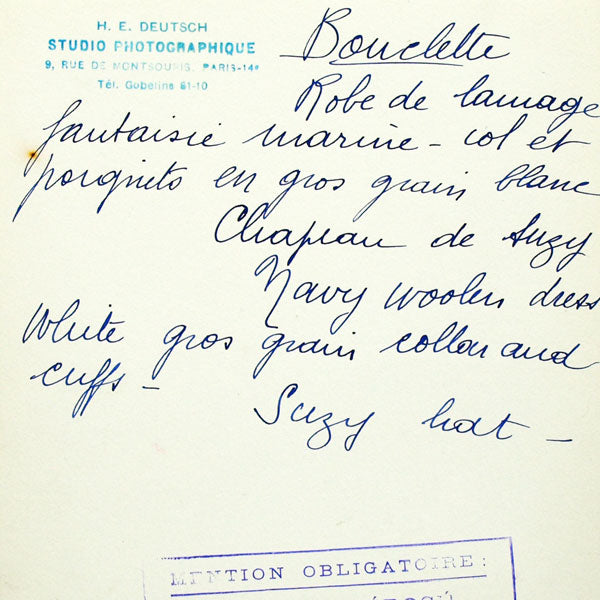 H. E. DEUTSCH
STUDIO PHOTOGRAPHIQUE
9, RUE DE MONTSOURIS, PARIS-14e
Tél. Gobelins 61-10
Bouclette
Robe de lainage
fantaisie marine - col et
poignets en gros grain blanc
Chapeau de Suzy
Navy woolen dress
White gros grain collar and
cuffs -
Suzy hat -
MENTION OBLIGATOIRE :